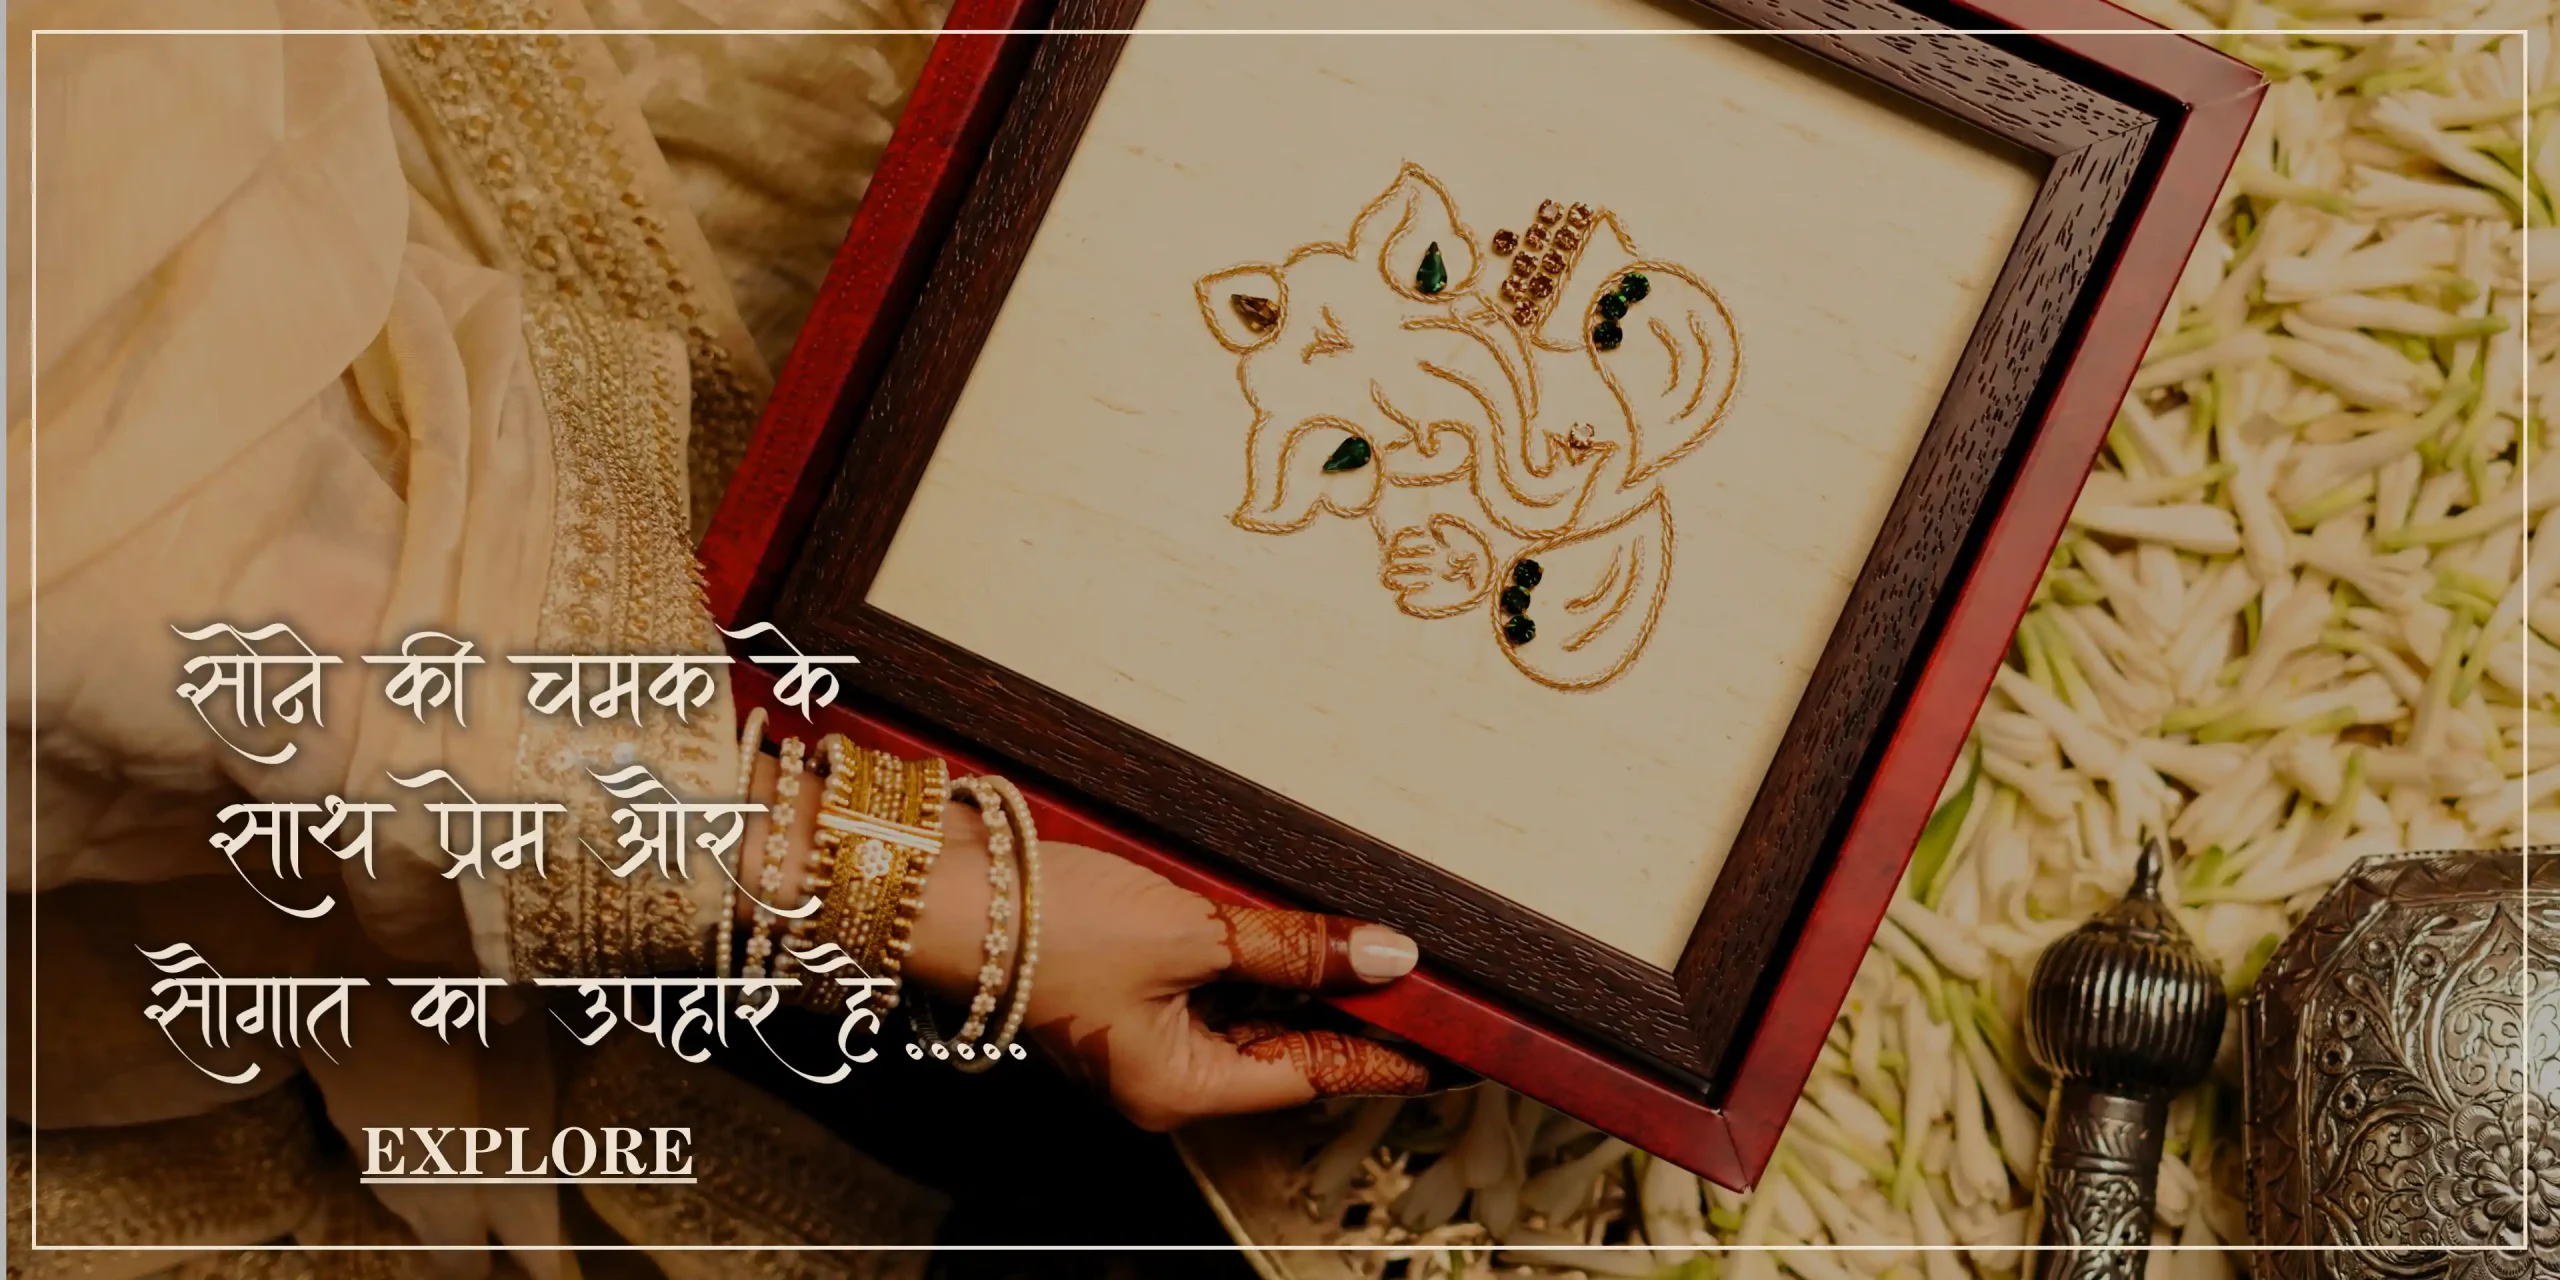 सोने की चमक के
साथ प्रेम और
सौगात का उपहार है.....
EXPLORE